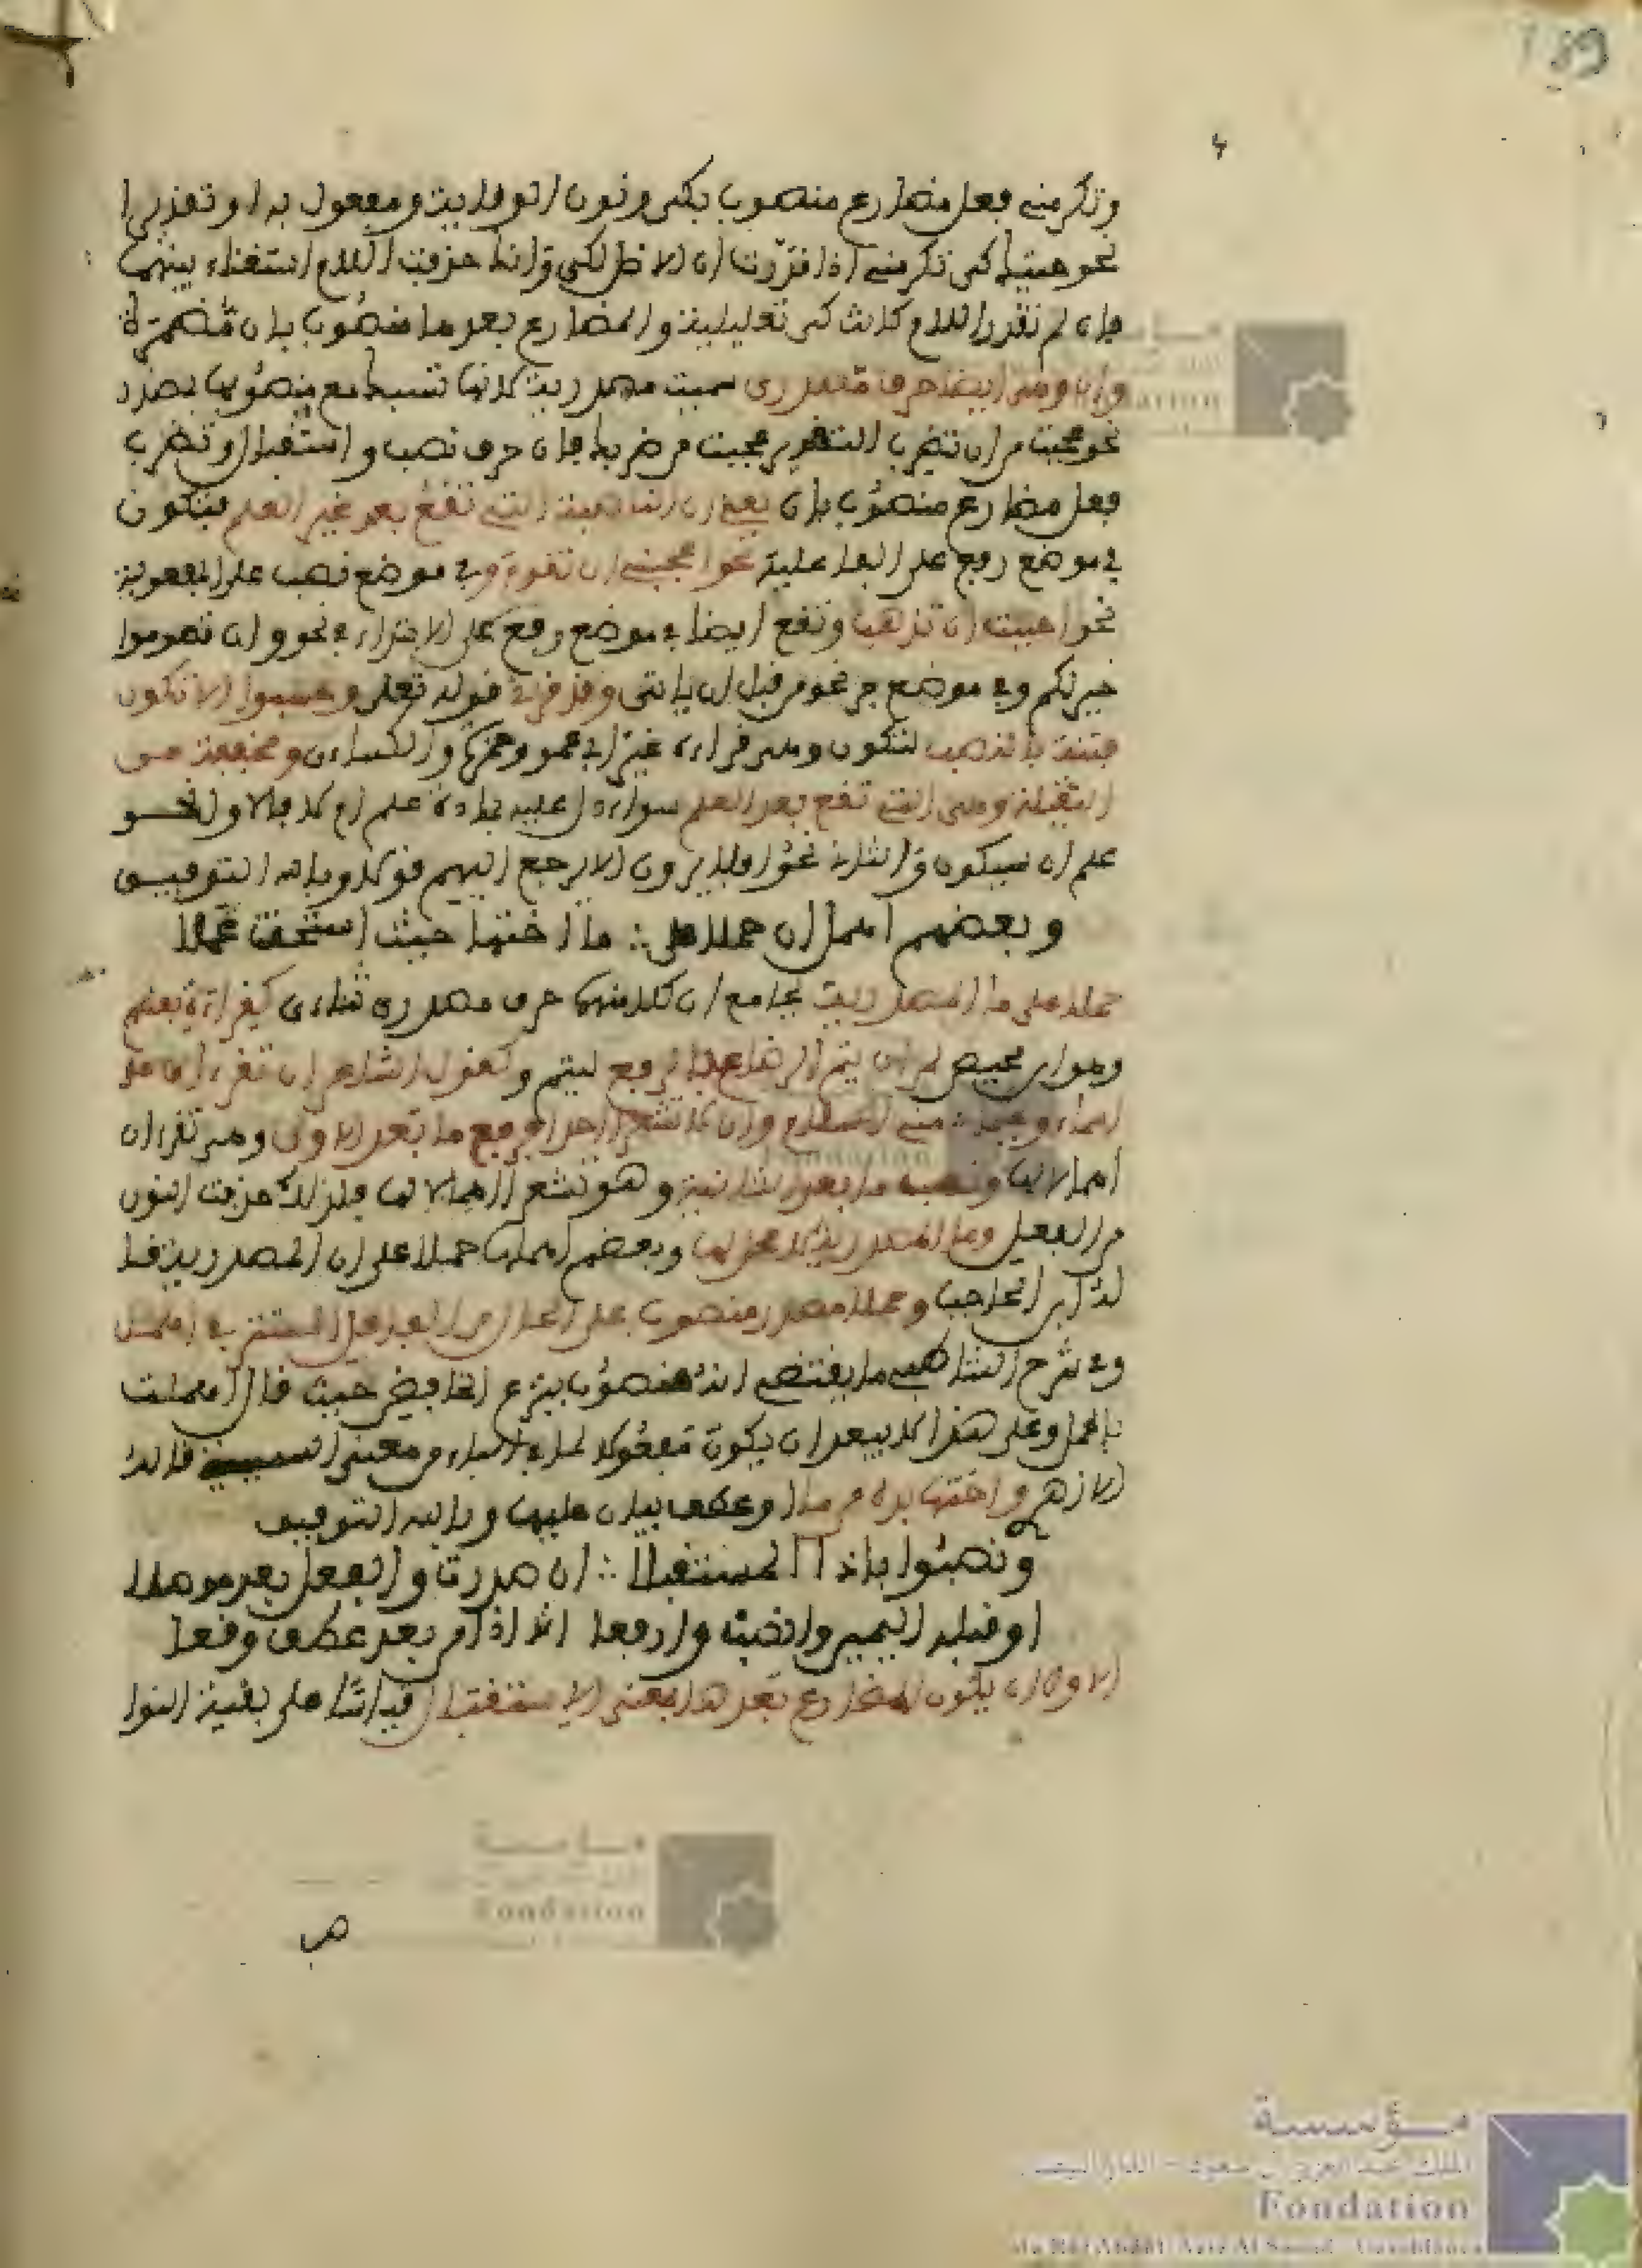 189
وتكرمني فعل مضارع منصوب بكي ونون الوقاية ومفعول به او تقديرا
نحو جئتك كي تكرمني اذا قدرت ان الاصل لكي وانما حذفت اللام استغناء بنيتها
فان لم تقدر اللام كانت كي تعليلية والمضارع بعدها منصوب بان مضمرة
وان وهي ايضا حرف مصدري سميت مصدرية لانها تسبك مع منصوبها بمصدر
نحو عجبت من ان تضرب التقدير عجبت من ضربك فان حرف نصب واستقبال وتضرب
فعل مضارع منصوب بان يعني ان الناصبة التي تقع بعد غير العلم فتكون
في موضع رفع على الفاعلية نحو اعجبني ان تقوم وفي موضع نصب على المفعولية
نحو احببت ان تذهب وتقع ايضا في موضع رفع على الابتداء في نحو وان تصوموا
خير لكم وفي موضع جر نحو من قبل ان ياتي وقد قرئ قوله تعلى وحسبوا الا تكون
فتنة بالنصب لتكون وهي قراءة غير ابي عمرو وحمزة والكساءي ومخففة من
الثقيلة وهي التي تقع بعد العلم سواء دل عليه بمادة علم ام لا فالاول نحو
علم ان سيكون والثاني نحو افلا يرون الا يرجع اليهم قولا وبالله التوفيق
وبعضهم اهمل ان حملا على ∴ ما اختها حيث استحقت عملا
حملا على ما المصدرية بجامع ان كلا منهما حرف مصدري ثناءي كقراءة بعضهم
وهو ابن محيصن لمن اراد ان يتم الرضاعة بالرفع ليتم وكقول الشاعر ان تقرءان على
اسماء ويحكما مني السلام وان لا تشعرا احدا فرفع ما بعد الاولى وهي تقرءان
اهمالا لها ونصب ما بعد الثانية وهو تشعرا اعمالا لها فلذلك حذفت النون
من الفعل وما المصدرية لا عمل لها وبعضهم اعملها حملا على ان المصدرية قا
له ابن الحاجب وحملا مصدر منصوب على الحال من الفاعل المستتر في اهمل
وفي شرح الشاطبي ما يقتضي انه منصوب بنزع الخافض حيث قال اهملت
بالحمل وعلى هذا لا يبعد ان يكون مفعولا له لما في الباء من معنى السببية قاله
الازهري واختها بدل من ما او عطف بيان عليها وبالله التوفيق
ونصبوا باذا المستقبلا ∴ ان صدرت والفعل بعد موصلا
او قبله اليمين وانصب وارفعا اذا اذا من بعد عطف وقعا
الاول ان يكون المضارع بعدها بمعنى الاستقبال قياسا على بقية النوا
صب
مؤسسة
الملك عبد العزيز آل سعود - الدار البيضاء
Fondation
du Roi Abdul Aziz Al Saoud - Casablanca